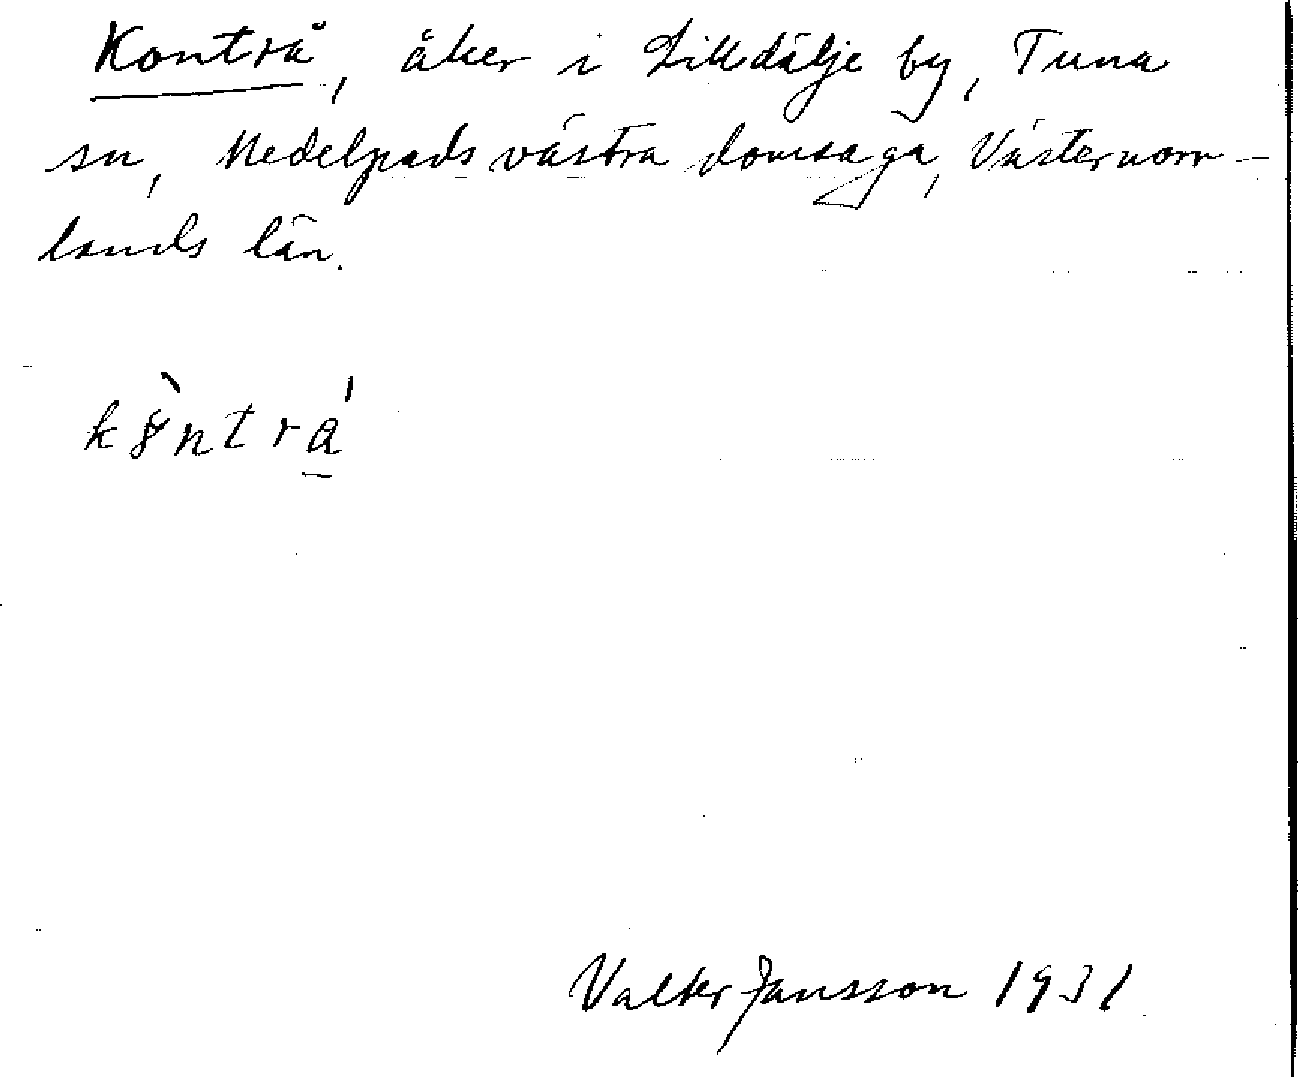 Kontrå, åker i Lilldälje by, Tuna
sn, Medelpads västra domsaga, Västernorr-
lands län.
Valter Jansson 1931